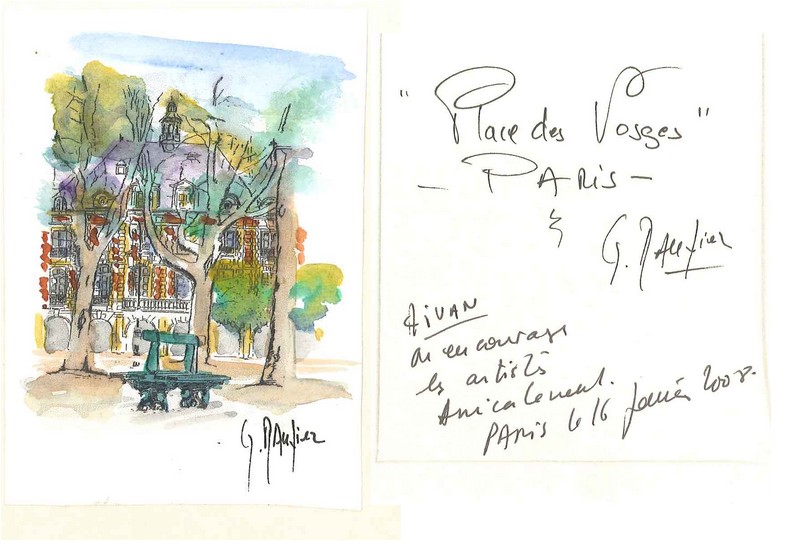 G.
"Place des Vosges"
- PARIS -
G.
à IVAN
qui encourage
les artistes
Amicalement.
PARIS le 16 janvier 2008.